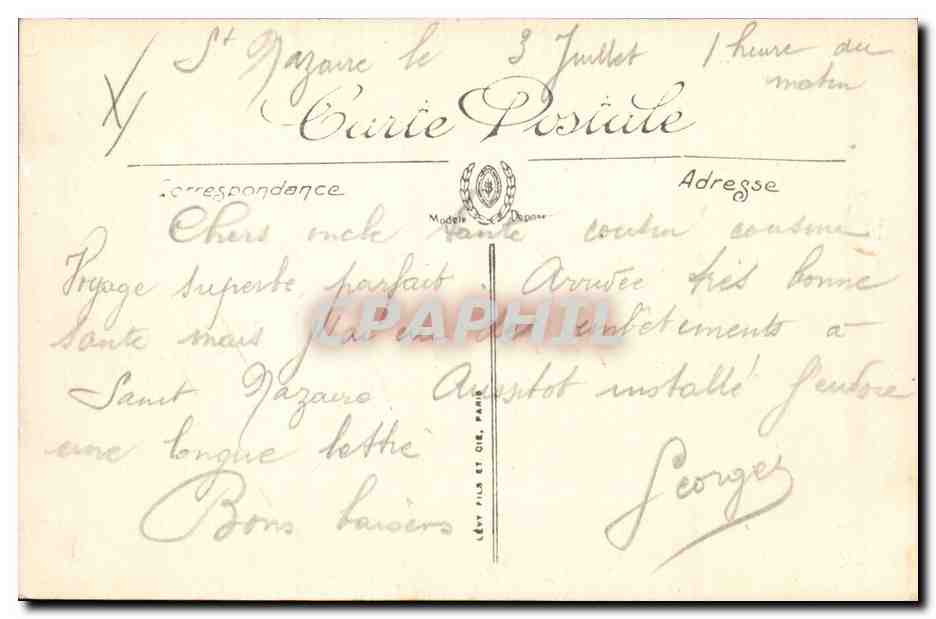 St Nazaire le 3 Juillet 1 heure du
matin
Carte Postale
Correspondance
Adresse
Modèle Déposé
Chers oncle tante cousin cousine
Voyage superbe parfait. Arrivée très bonne
santé mais j'ai eu des embêtements à
Saint Nazaire Aussitot installé j'envoie
une longue lettre
Bons baisers
Georges
LÉVY FILS ET CIE, PARIS
CPAPHIL